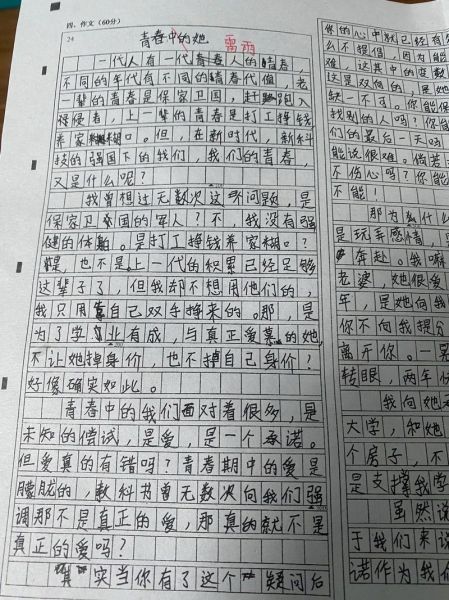 四、作文（60分）
24
青春中的她
需雨
一代人有一代青春人的青春，
不同的年代有不同的青春代值，老
一辈的青春是保家卫国，赶跑入
侵侵者，上一辈的青春是打工挣钱
养家糊口。但，在新时代，新科
技的强国下的我们，我们的青春，
又是什么呢？
我曾想过无数次这个问题，是
保家卫国的军人？不，我没有强
健的体魄。是打工挣钱养家糊口？
是，也不是。上一代的积累已经足够
这辈子了，但我却不想用他们的，
我只用靠自己双手挣来的。那，是
为了学业有成，与真正爱慕的她，
不让她掉身价，也不掉自己身价？
好像确实如此。
青春中的我们面对着很多，是
未知的偿试，是爱，是一个承诺。
但爱真的有错吗？青春期中的爱是
朦胧的，教科书曾无数次向我们强
调那不是真正的爱，那真的就不是
真正的爱吗？
其实当你有了这个疑问后
你的心中就已经有
么不提倡，因为能
难，这其中的变数
这是双向的，是她
缺一不可。你能保
找别的人吗？你
们的最后一天吗
能说很难。倘若
不伤心吗？你能
不能！
那为什么
是玩弄感情，是
奔赴。我
老婆，她很爱
年，是她向我
你不向我提分
离开你。一晃
转眼，两年
我向她
大学，和她
个房子，不
是支撑我学
虽然说
于我们来说
诺作为我